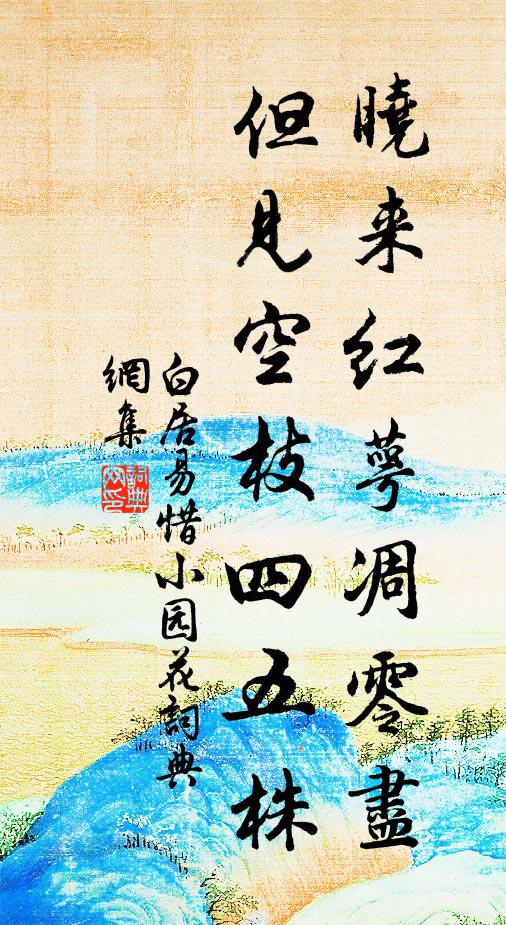 曉来红萼凋零盡
但見空枝四五株
白居易惜小园花詞典
網集